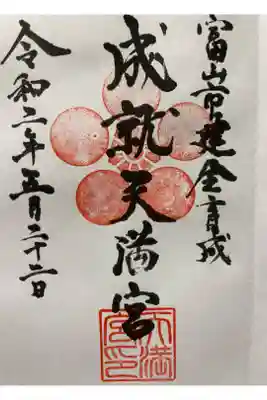 富山市建全育成
成就天満宮
令和二年五月二十二日
天満宮印